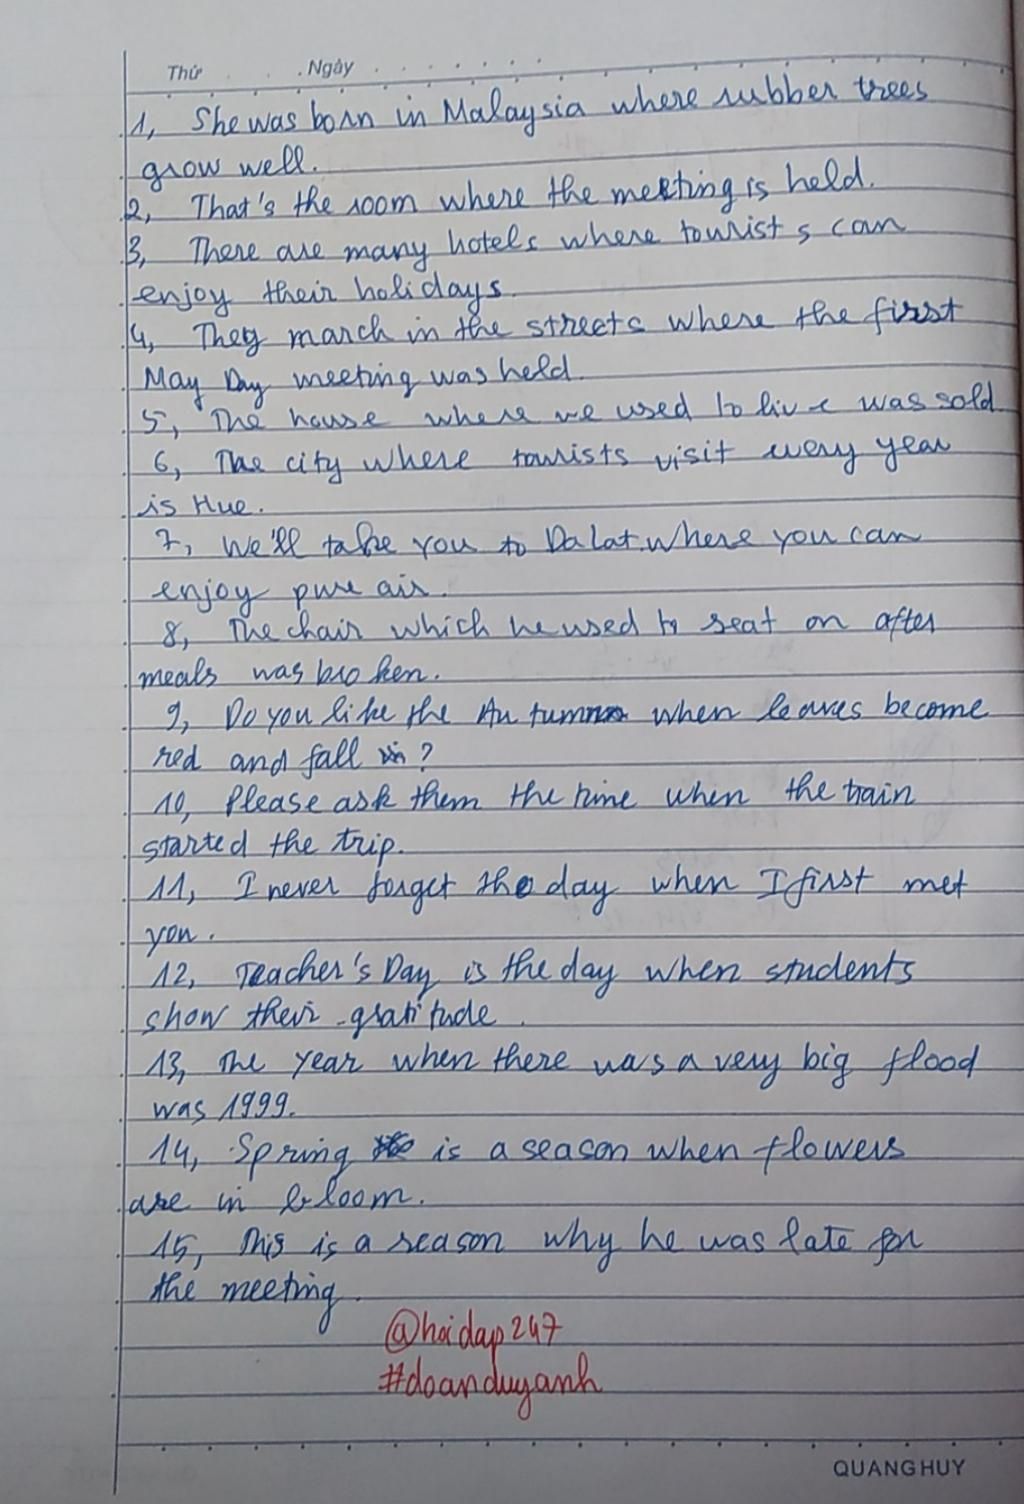 Thứ . . . Ngày . . . . . . .
1, She was born in Malaysia where rubber trees
grow well.
2, That's the room where the meeting is held.
3, There are many hotels where tourists can
enjoy their holidays.
4, They march in the streets where the first
May Day meeting was held.
5, The house where we used to live was sold
6, The city where tourists visit every year
is Hue.
7, We'll take you to Dalat. where you can
enjoy pure air.
8, The chair which he used to seat on after
meals was broken.
9, Do you like the Autumn when leaves become
red and fall ?
10, Please ask them the time when the train
started the trip.
11, I never forget the day when I first met
you.
12, Teacher's Day is the day when students
show their gratitude.
13, The year when there was a very big flood
was 1999.
14, Spring is a season when flowers
are in bloom.
15, This is a reason why he was late for
the meeting.
@hoidap247
#doanduyanh
QUANGHUY